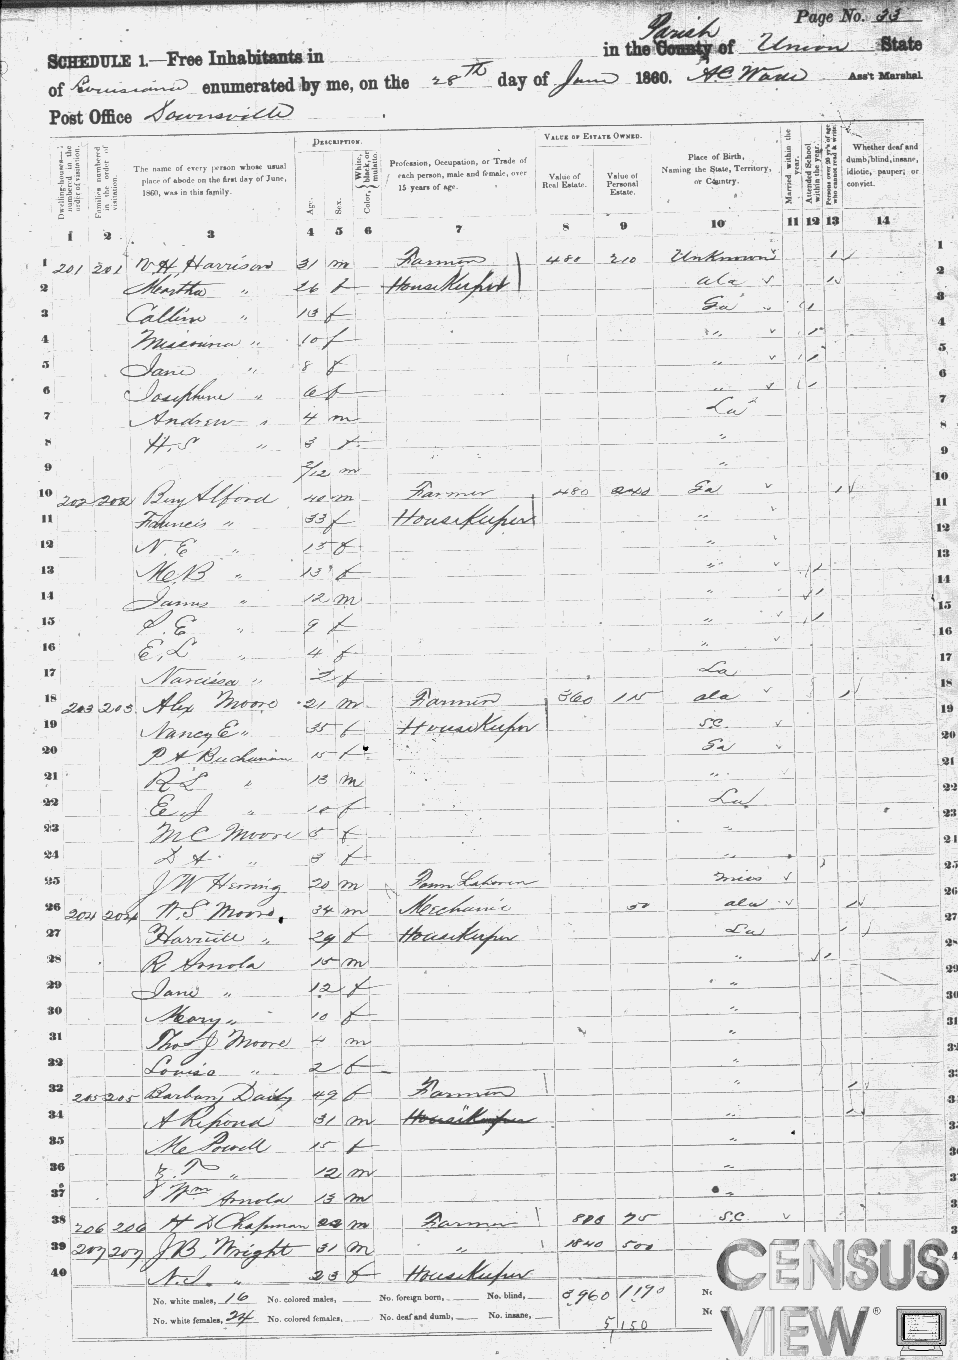 Page No. 33
SCHEDULE 1.—Free Inhabitants in in the County Parish of Union State
of Louisiana enumerated by me, on the 28th day of June 1860. A C Wade Ass't Marshal.
Post Office Downsville
Dwelling-houses— numbered in the order of visitation.
Families numbered in the order of visitation.
The name of every person whose usual place of abode on the first day of June, 1860, was in this family.
DESCRIPTION.
Age.
Sex.
Color, White, black, or mulatto.
Profession, Occupation, or Trade of each person, male and female, over 15 years of age.
VALUE OF ESTATE OWNED.
Value of Real Estate.
Value of Personal Estate.
Place of Birth, Naming the State, Territory, or Country.
Married within the year.
Attended School within the year.
Persons over 20 y'rs of age who cannot read & write.
Whether deaf and dumb, blind, insane, idiotic, pauper, or convict.
1 2 3 4 5 6 7 8 9 10 11 12 13 14
1 201 201 W. H. Harrison 31 m Farmer 480 210 Unknown 1
2 Martha " 26 f HouseKeeper ala 1
3 " 13 f Ga 1
4 Missouria " 10 f " 1
5 Jane " 8 f " 1
6 Josephine " 6 f " 1
7 Andrew " 4 m La
8 H. S " 3 f "
9 2/12 m "
10 202 202 Alford 40 m Farmer 480 Ga 1
11 Francis " 33 f HouseKeeper "
12 N. E " 15 f "
13 M. B " 13 f " 1
14 James " 12 m " 1
15 S. E " 9 f " 1
16 E. L " 4 f "
17 Narcissa " 2 f La
18 203 203 Alex Moore 21 m Farmer 360 115 ala 1
19 Nancy E " 35 f HouseKeeper S.C.
20 P A Buchanan 15 f Ga
21 R L " 13 m "
22 E. J " 10 f La
23 M C Moore 5 f "
24 D A " 3 f "
25 J W Heming 20 m Farm Laborer Miss
26 204 204 W. S Moore 34 m Mechanic 50 ala 1
27 Harriett " 29 f HouseKeeper La 1
28 R Arnold 15 m " 1
29 Jane " 12 f "
30 Mary " 10 f "
31 Thos J Moore 4 m "
32 Louisa " 2 f "
33 205 205 Barbary Daily 49 f Farmer " 1
34 A Ripond 31 m HouseKeeper " 1
35 M Powell 15 f "
36 Z. T " 12 m "
37 Wm Arnola 13 m "
38 206 206 H D Chapman 22 m Farmer 800 75 S.C
39 207 207 J B. Wright 31 m " 1840 500
40 N. J. " 23 f HouseKeeper
No. white males, 16 No. colored males, No. foreign born, No. blind, 3,960 1190
No. white females, 24 No. colored females, No. deaf and dumb, No. insane, 5,150
CENSUS
VIEW ®